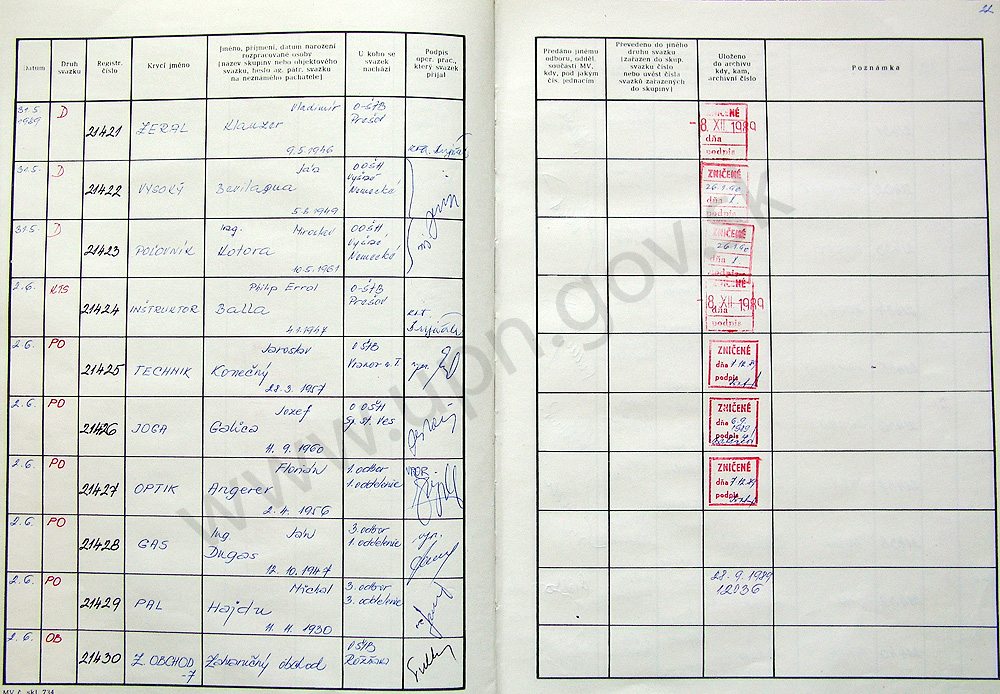 22
Datum
Druh svazku
Registr. číslo
Krycí jméno
Jméno, příjmení, datum narození
rozpracované osoby
(název skupiny nebo objektového
svazku, heslo ag. pátr. svazku
na neznámého pachatele)
U koho se
svazek
nachází
Podpis
oper. prac.,
který svazek
přijal
Předáno jinému
odboru, odděl.
součásti MV,
kdy, pod jakým
čís. jednacím
Převedeno do jiného
druhu svazku
(zařazen do skup.
svazku číslo
nebo uvést čísla
svazků zařazených
do skupiny)
Uloženo
do archivu
kdy, kam,
archivní číslo
Poznámka
31.5. 1989 D 21421 ZERAL Vladimír
Klanzer
9.5.1946
O-ŠTB
Prešov
- 8. XII. 1989
dňa
podpis
31.5. D 21422 VYSOKÝ Ján
Bevilaqua
5.8.1949
OOŠH
Vyšné
Nemecké
ZNIČENÉ
26.1.90
dňa
podpis
31.5. D 21423 POĽOVNÍK Ing. Miroslav
Kotora
10.5.1961
OOŠH
Vyšné
Nemecké
ZNIČENÉ
26.1.90
dňa
podpis
2.6. KTS 21424 INŠTRUKTOR Philip Errol
Balla
4.1.1947
O-ŠTB
Prešov
- 8. XII. 1989
dňa
podpis
2.6. PO 21425 TECHNIK Jaroslav
Konečný
28.3.1957
OŠTB
Vranov n.T.
ZNIČENÉ
dňa 7.12.89
podpis
2.6. PO 21426 JOGA Jozef
Galica
11.9.1960
O OŠH
Sp. St. Ves
ZNIČENÉ
dňa
podpis
2.6. PO 21427 OPTIK Florián
Angerer
2.4.1956
1. odbor
1. oddelenie
ZNIČENÉ
dňa 7.12.89
podpis
2.6. PO 21428 GAS Ing Ján
Dugas
12.10.1947
3. odbor
1. oddelenie
2.6. PO 21429 PAL Michal
Hajdu
11.11.1930
3. odbor
3. oddelenie
28.9.1989
12036
2.6. OB 21430 Z. OBCHOD
-7
Zahraničný obchod
OŠTB
Rožňava
MV č. skl. 734
www.upn.gov.sk